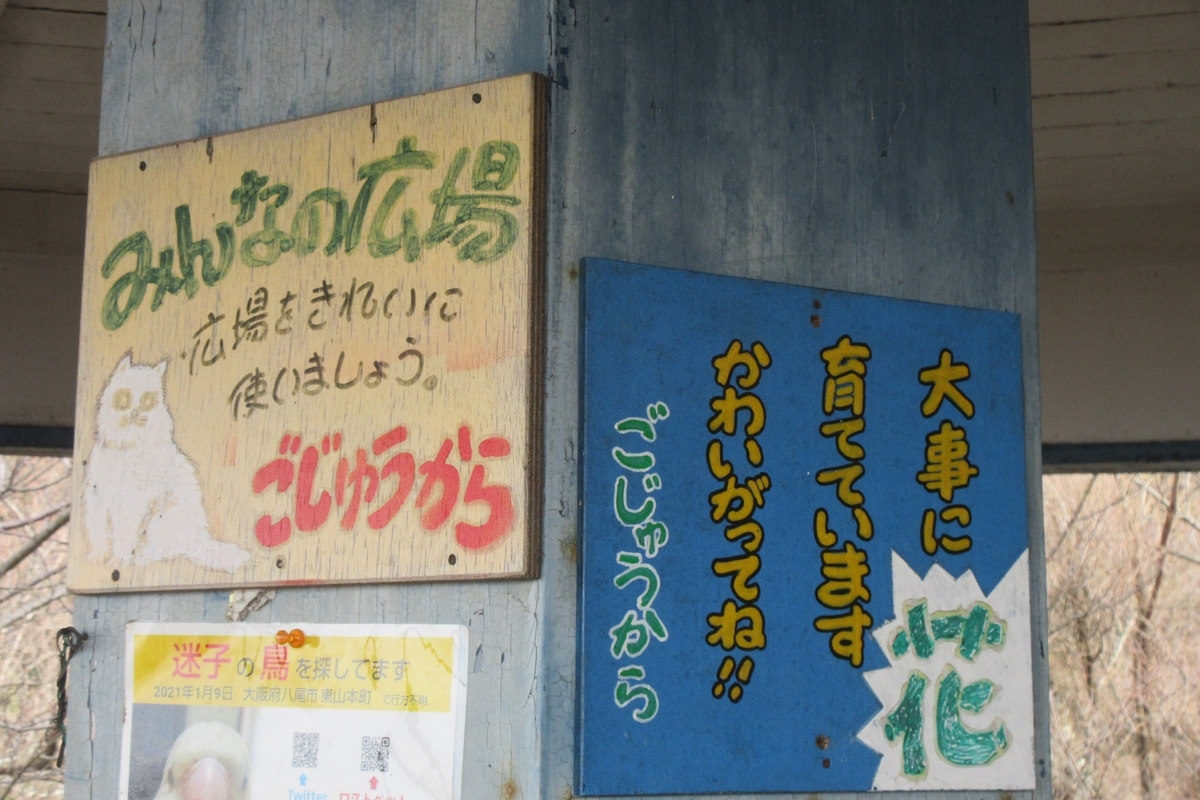 みんなの広場
広場をきれいに
使いましょう。
ごじゅうから
大事に
育てています
かわいがってね!!
ごじゅうから
花
迷子の鳥を探してます
2021年1月9日 大阪府八尾市東山本町 で行方不明
Twitter